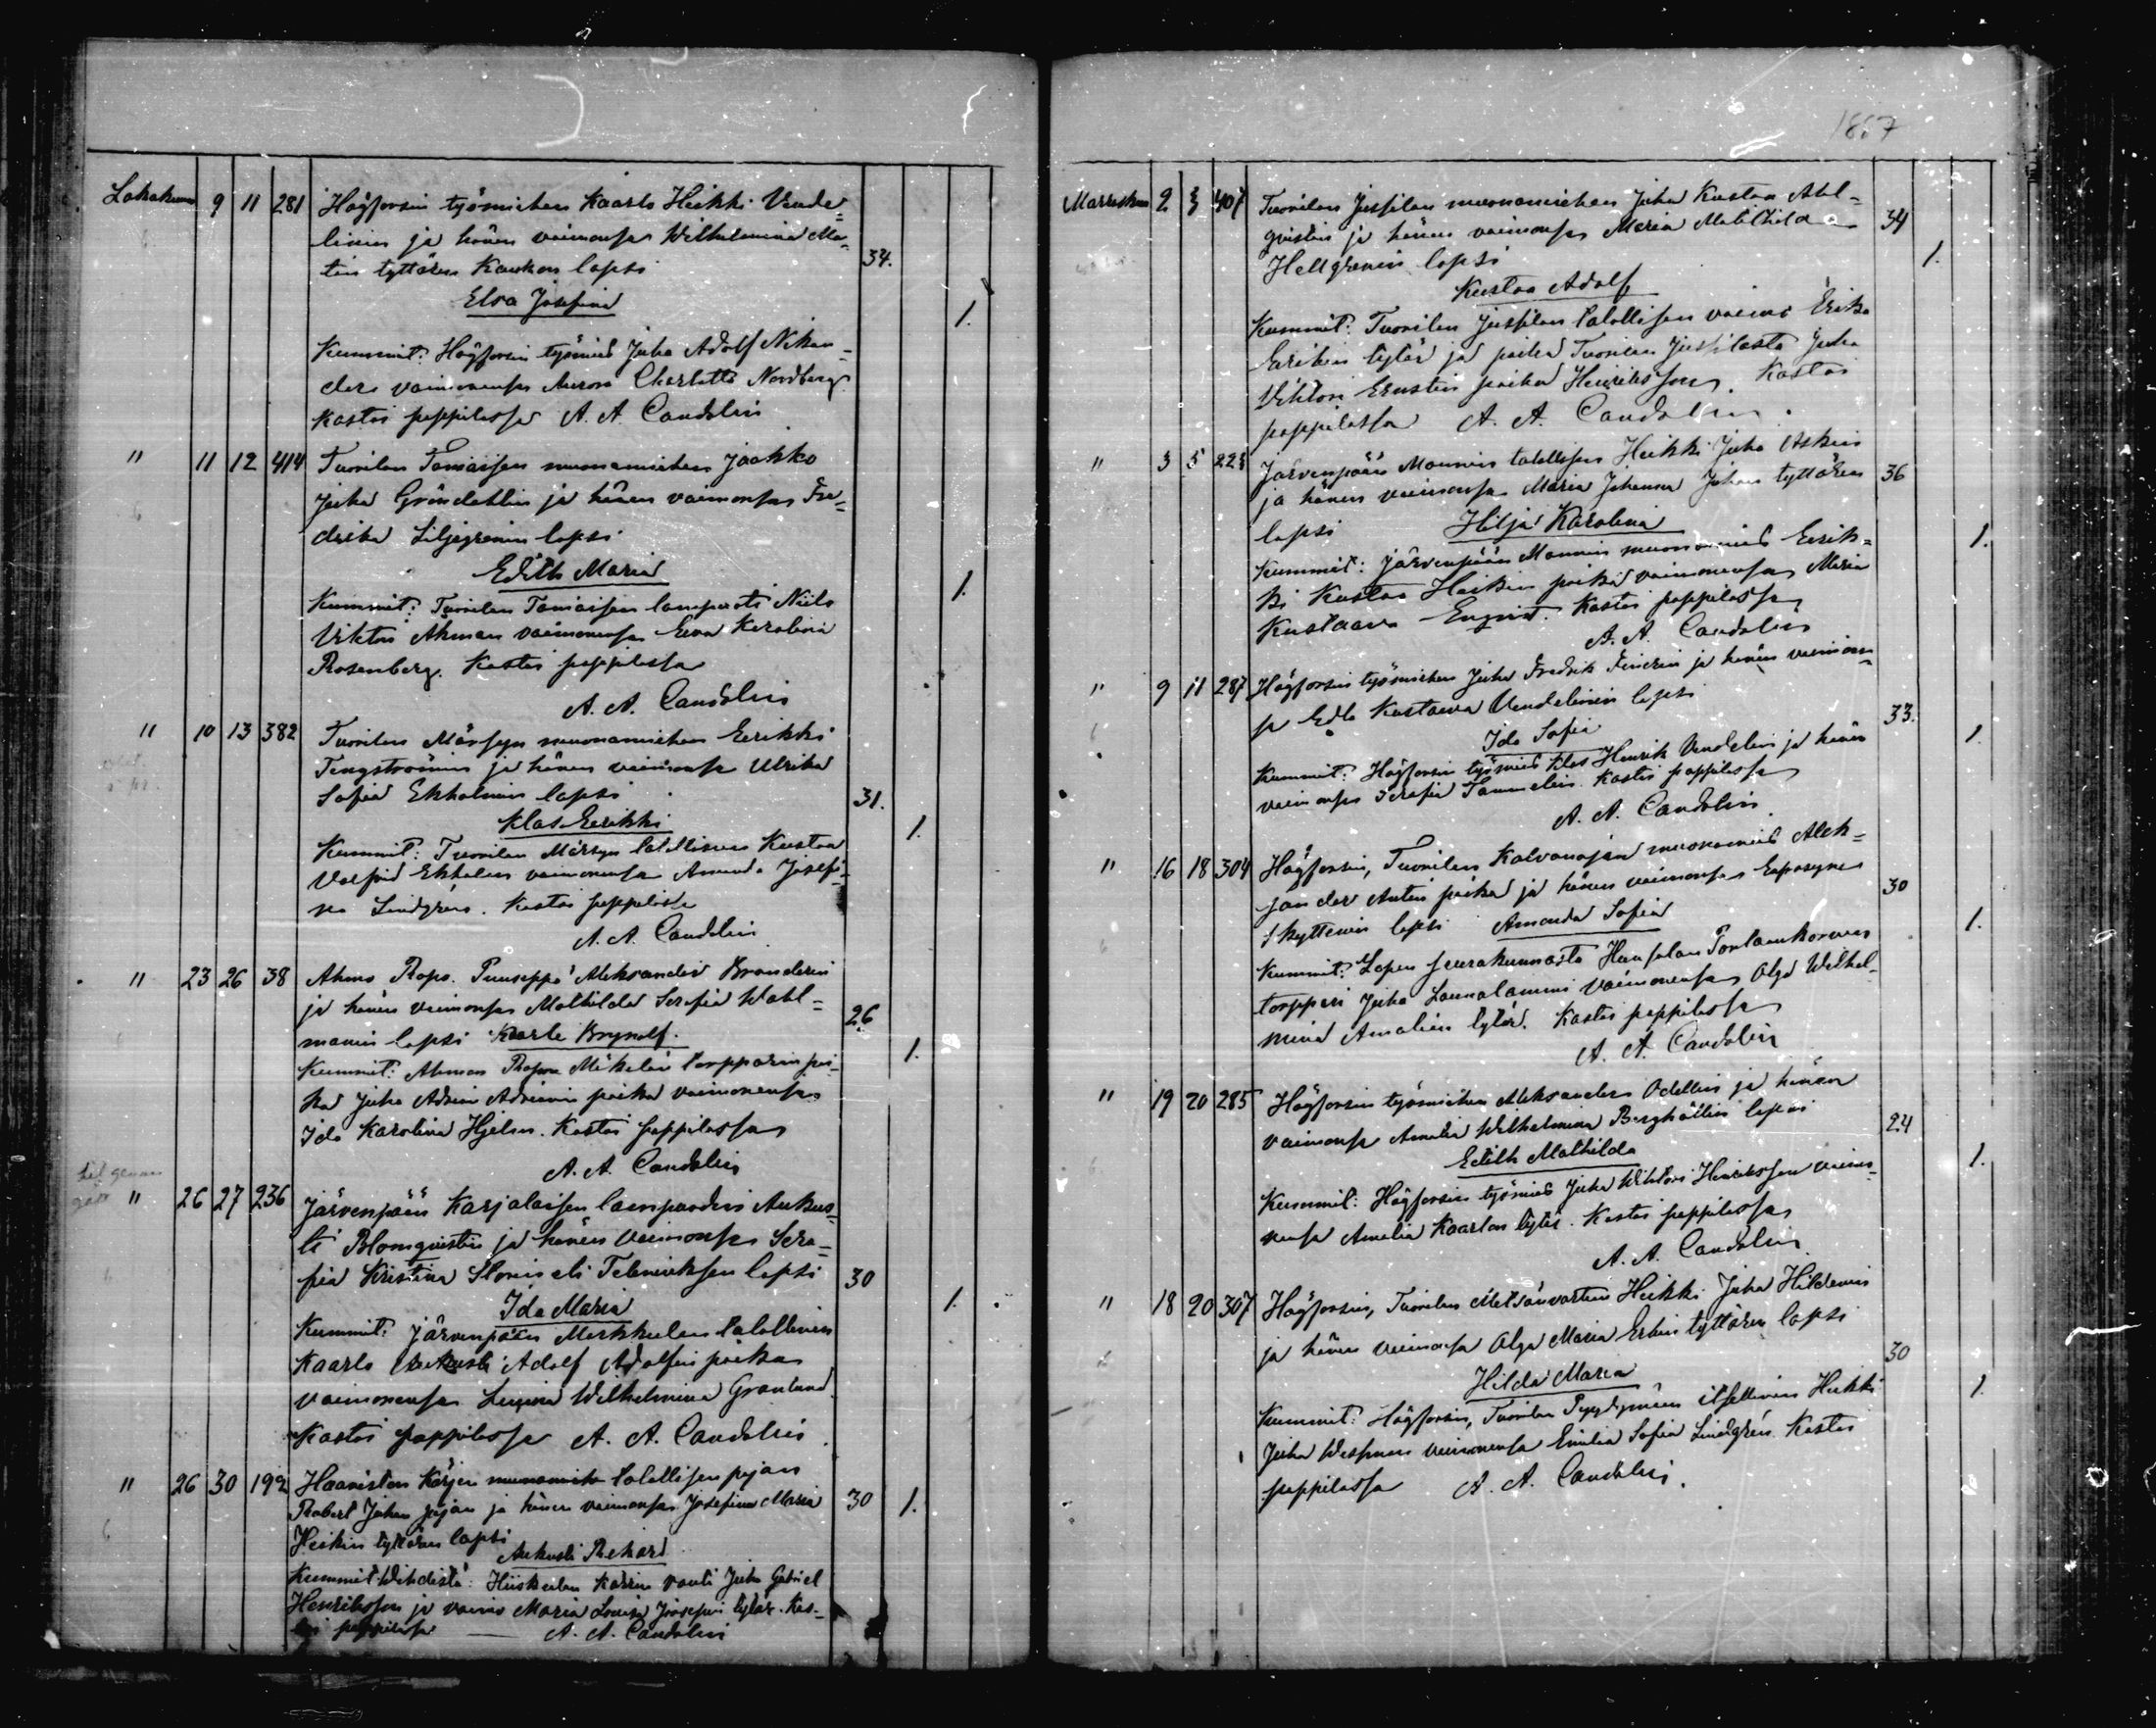 Lokakuun 9 11 281 Högforsin työmiehen Kaarlo Heikki Vende-
linin ja hänen vaimonsa Wilhelmina Ma-
tin tyttären Kaukon lapsi 34.
Elsa Josefina 1.
Kummit: Högforsin työmies Juha Adolf Nikan-
der vaimonensa Aurora Charlotta Nordberg
Kastoi pappilassa A. A. Candolin
" 11 12 414 Tuorilan Tamaisen muonamiehen Jaakko
Juha Gröndahlin ja hänen vaimonsa Fre-
drika Liljegrenin lapsi
Edith Maria 1.
Kummit: Tuorilan Tamaisen lampuoti Niilo
Viktor Åhman vaimonensa Eeva Karolina
Rosenberg. Kastoi pappilassa
A. A. Candolin
" 10 13 382 Tuorilan Mårsyn muonamiehen Eerikki
Tengströmin ja hänen vaimonsa Ulrika
Sofia Ekholmin lapsi 31.
Klas Eerikki 1.
Kummit: Tuorilan Mårsyn talollinen Kustaa
Valfrid Ekholm vaimonensa Amanda Josefi-
na Lindgrén. Kastoi pappilassa
A. A. Candolin
" 23 26 38 Ahmo Ropo. Puuseppä Aleksander Branderin
ja hänen vaimonsa Mathilda Serafia Wahl-
manin lapsi Kaarle Brynolf. 26 1.
Kummit: Ahmon Mikelin torpparin poi-
ka Juha Adrian Adrianin poika vaimonensa
Ida Karolina Hjelm. Kastoi pappilassa
A. A. Candolin
" 26 27 236 Järvenpään Karjalaisen lampuodin Aukus-
ti Blomqvistin ja hänen vaimonsa Sera-
fia Kristina eli lapsi 30
Ida Maria 1.
Kummit: Järvenpään Merkkulan talollinen
Kaarlo Aukusti Adolf Adolfin poika
vaimonensa Lugina Wilhelmina Granlund
Kastoi pappilassa A. A. Candolin
" 26 30 192 Haaviston Körjen talollisen pojan
Robert Juhan pojan ja hänen vaimonsa Josefina Maria 30 1.
Heikin tyttären lapsi
Aukusti Rikhard
Kummit Wihdistä: Hiiskulan vouti Juho Gabriel
Henriksson ja vaimo Maria Lovisa Joosepin tytär. Kas-
toi pappilassa A. A. Candolin
1867
Marraskuun 2 3 407 Tuorilan Jussilan muonamiehen Juha Kustaa Ahl-
qvistin ja hänen vaimonsa Maria Mathilda 34
Hellgrenin lapsi 1.
Kustaa Adolf
Kummit: Tuorilan Jussilan talollisen vaimo Erika
Eerikin tytär ja poika Tuorilan Jussilasta Juha
Viktori Ernstin poika Henriksson. Kastoi
pappilassa A. A. Candolin.
" 3 5 223 Järvenpään Mannin talollisen Heikki Juha Askin
ja hänen vaimonsa Maria Johanna Juhan tyttären 36
lapsi Hilja Karolina 1.
Kummit: Järvenpään Mannin muonamies Eerik-
ki Kustaa Heikin poika vaimonensa Maria
Kustaava Enqvist. Kastoi pappilassa
A. A. Candolin
" 9 11 287 Högforsin työmiehen Juha Fredrik Finérin ja hänen vaimon-
sa Edla Kustaava Vendelinin lapsi 33.
Ida Sofia 1.
Kummit: Högforsin työmies Klas Henrik Vendelin ja hänen
vaimonsa Serafia Tammelin. Kastoi pappilassa
A. A. Candolin
" 16 18 304 Högforsin, Tuorilan Kalvanojan muonamies Alek-
sander Antin poika ja hänen vaimonsa Eufrosyne 30
Skyttenin lapsi Amanda Sofia 1.
Kummit: Lopen seurakunnasta Hunsalan
torppari Juha Lounalammi vaimonensa Olga Wilhel-
mina Amalian tytär. Kastoi pappilassa
A. A. Candolin
" 19 20 285 Högforsin työmiehen Aleksander Odellin ja hänen
vaimonsa Amalia Wilhelmina Berghällin lapsi 24
Edith Mathilda 1.
Kummit: Högforsin työmies Juha Wiktori Henriksson vaimo-
nensa Amalia Kaarlon tytär. Kastoi pappilassa
A. A. Candolin
" 18 20 307 Högforsin, Tuorilan Metsänvartian Heikki Juha Hildenin
ja hänen vaimonsa Olga Maria Erkin tyttären lapsi 30
Hilda Maria 1.
Kummit: Högforsin, Tuorilan itsellinen Heikki
Juha Westman vaimonensa Emilia Sofia Lindgrén. Kastoi
pappilassa A. A. Candolin.